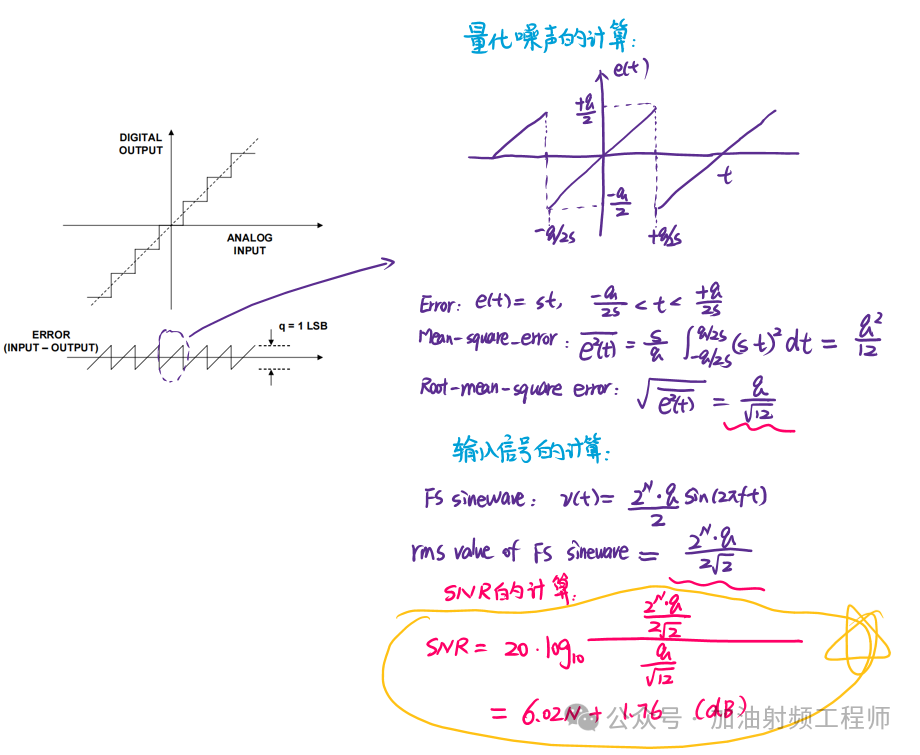 量化噪声的计算:
e(t)
+q/2
-q/2
t
-q/2s
+q/s
DIGITAL
OUTPUT
ANALOG
INPUT
ERROR
(INPUT – OUTPUT)
q = 1 LSB
Error: e(t) = st, -q/2s < t < +q/2s
Mean-square-error: \overline{e²(t)} = s/q ∫_{-q/2s}^{q/2s} (st)² dt = q²/12
Root-mean-square error: √\overline{e²(t)} = q/√12
输入信号的计算:
FS sinewave: v(t) = 2^N·q/2 sin(2πft)
rms value of FS sinewave = 2^N·q/2√2
SNR的计算:
SNR = 20·log₁₀ (2^N·q/2√2)/(q/√12)
= 6.02N + 1.76 (dB)
公众号 · 加油射频工程师